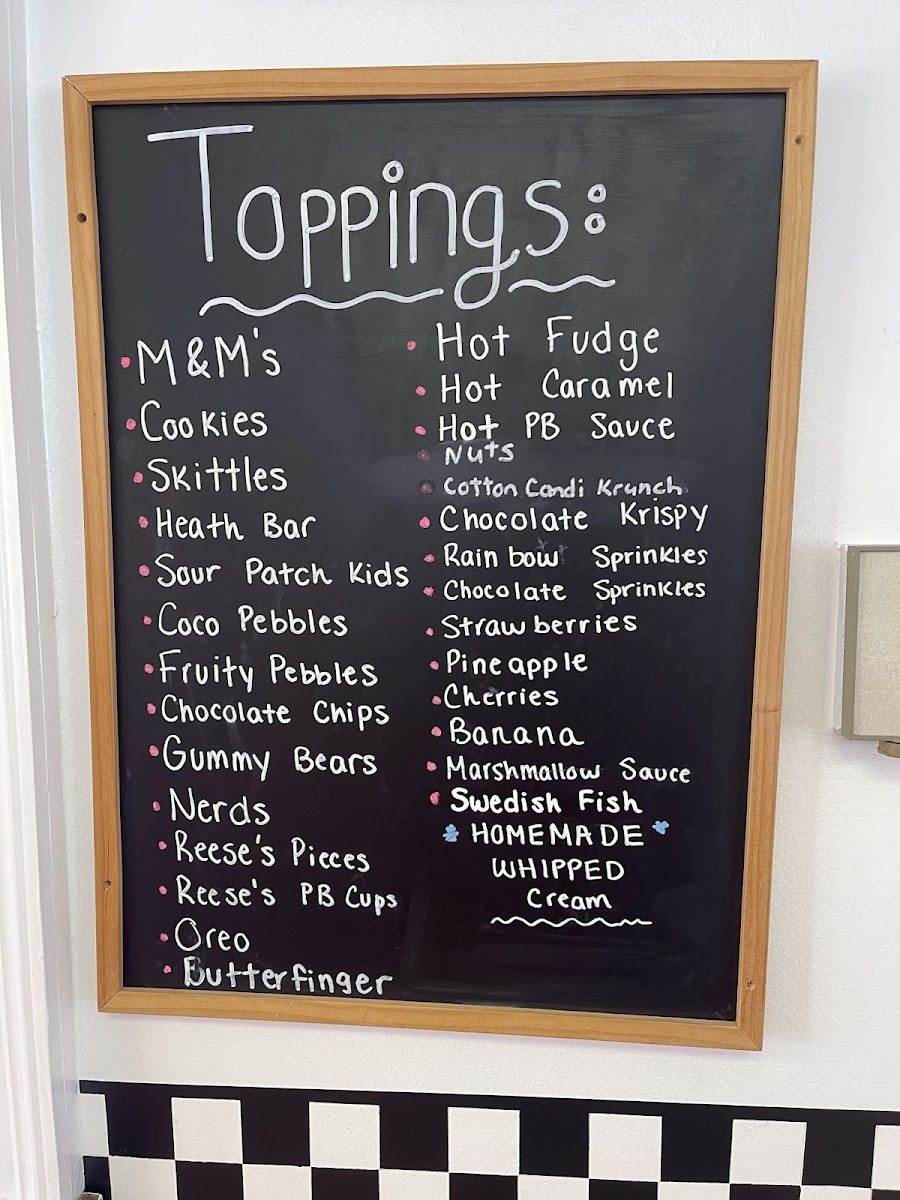 Toppings:
M&M's
Cookies
Skittles
Heath Bar
Sour Patch Kids
Coco Pebbles
Fruity Pebbles
Chocolate Chips
Gummy Bears
Nerds
Reese's Pieces
Reese's PB Cups
Oreo
Butterfinger
Hot Fudge
Hot Caramel
Hot PB Sauce
Nuts
Cotton Candi Krunch
Chocolate Krispy
Rainbow Sprinkles
Chocolate Sprinkles
Strawberries
Pineapple
Cherries
Banana
Marshmallow Sauce
Swedish Fish
HOMEMADE
WHIPPED
Cream